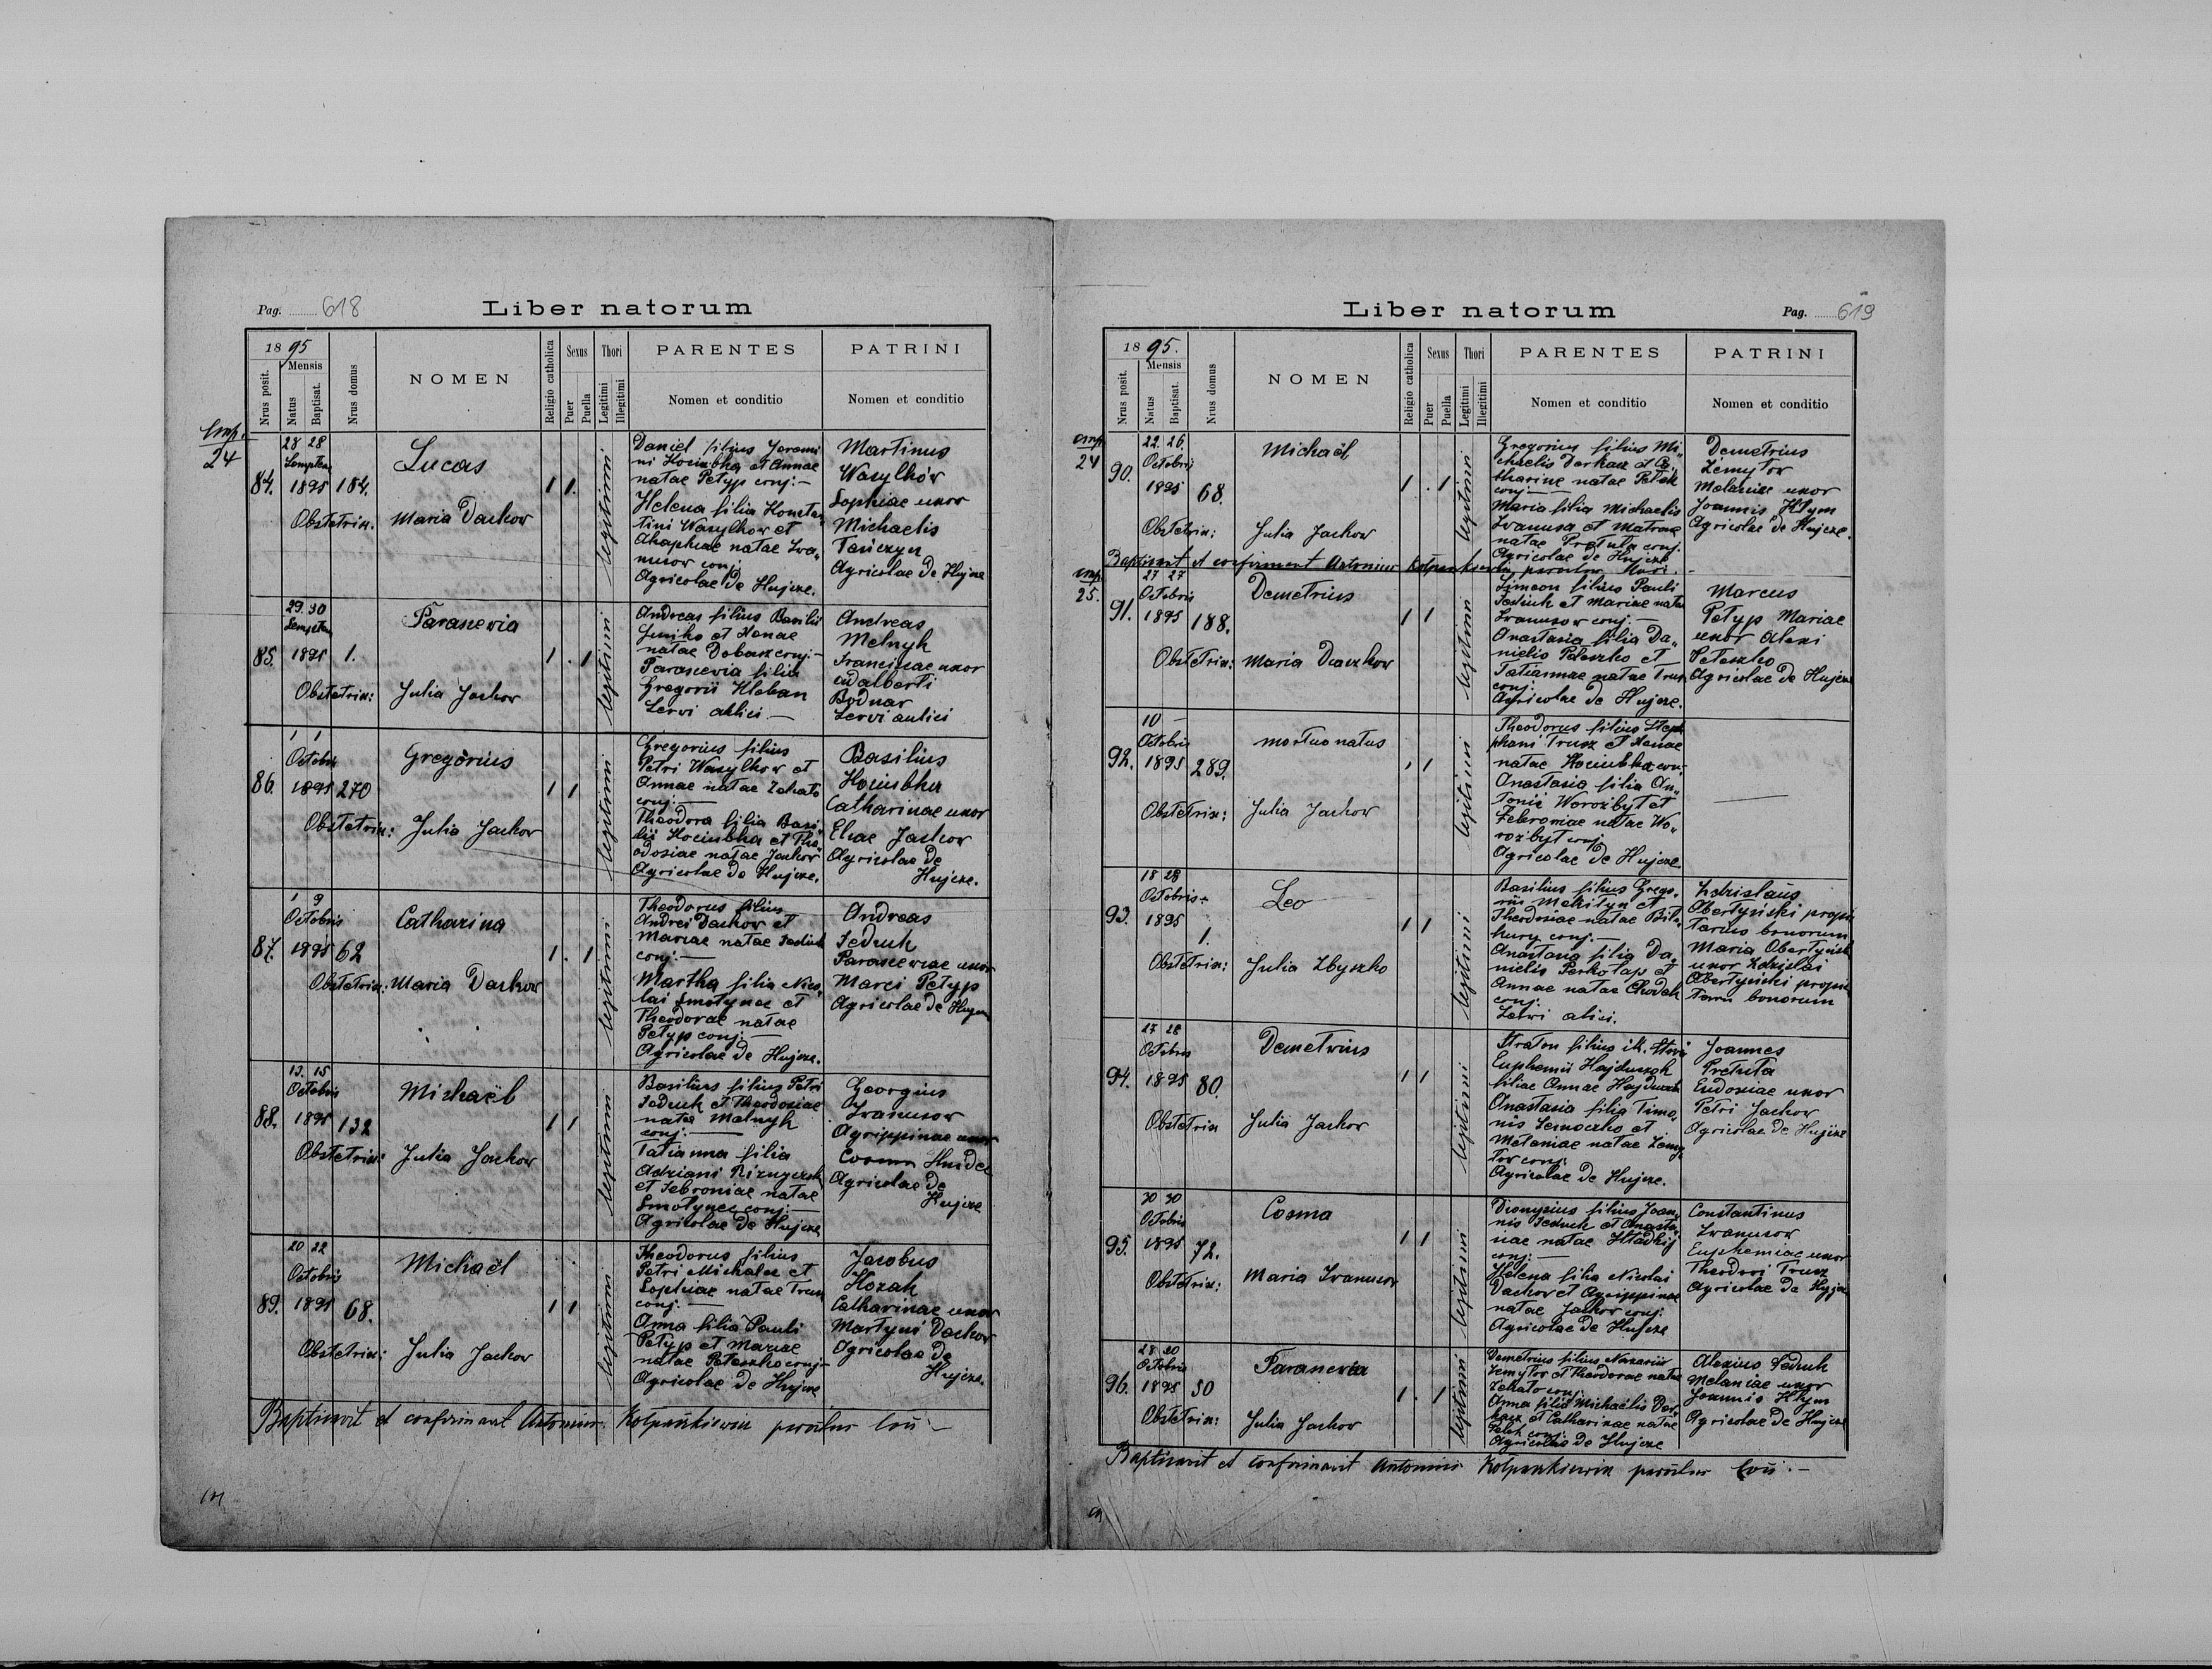 Pag. 618
Liber natorum
1895
Mensis
Nrus posit.
Natus
Baptisat.
Nrus domus
NOMEN
Religio catholica
Sexus
Puer
Puella
Thori
Legitimi
Illegitimi
PARENTES
Nomen et conditio
PATRINI
Nomen et conditio
24
84.
28 28
1895 184.
Lucas
Obstetrix: Maria Dackow
1 1.
legitimi
Daniel filius
et Annae
natae Petyp conj: —
Helena filia Constan
tini Wasylkow et
natae Iwa"
nusow conj.
Agricolae de Hujcze.
Martinus
Wasylków
Sophiae uxor
Michaelis
Agricolae de Hujcze
85.
29. 30
1895 1.
Parascevia
Obstetrix: Julia Jackow
1 . 1
legitimi
Andreas filius Basilii
et Xenae
natae conj: —
Parascevia filia
Gregorii Kleban
Servi aulici —
Andreas
Melnyk
Franciscae uxor
Adalberti
Bodnar
Servi aulici
86.
1 1
Octobris
1895 270
Gregorius
Obstetrix: Julia Jackow
1 1
legitimi
Gregorius filius
Petri Wasylkow et
Annae natae
conj: —
Theodora filia Basi
lii Hociubka et The"
odosiae natae Jackow
Agricolae de Hujcze.
Basilius
Hociubka
Catharinae uxor
Eliae Jackow
Agricolae de
Hujcze.
87.
1 9
Octobris
1895 62
Catharina
Obstetrix: Maria Dackow
1 . 1
legitimi
Theodorus filius
Andrei Dackow et
Mariae natae Fedink
conj: —
Martha filia Nico"
lai Smotynec et
Theodorae natae
Petyp conj. —
Agricolae de Hujcze.
Andreas
Fedink
Parasceviae uxor
Marci Petyp
Agricolae de Hujcze
88.
13. 15
Octobris
1895 132
Michaël
Obstetrix: Julia Jackow
1 1
legitimi
Basilius filius Petri
et Theodosiae
natae Melnyk
conj: —
Tatianna filia
Adriani
et Febroniae natae
Smotynec conj: —
Agricolae de Hujcze
Georgius
Iwanusow
Agrippinae uxor
Agricolae de
Hujcze
89.
20 22
Octobris
1895 68.
Michaël
Obstetrix: Julia Jackow
1 1
legitimi
Theodorus filius
Petri Michalec et
Sophiae natae Trusz
conj: —
Anna filia Pauli
Petyp et Mariae
natae Peteszko conj. —
Agricolae de Hujcze
Jacobus
Kozak
Catharinae uxor
Martyni Dackow
Agricolae de
Hujcze.
Baptisavit et confirmavit Antonius Kolpankiewicz parochus loci —
Pag. 619
Liber natorum
1895.
Mensis
Nrus posit.
Natus
Baptisat.
Nrus domus
NOMEN
Religio catholica
Sexus
Puer
Puella
Thori
Legitimi
Illegitimi
PARENTES
Nomen et conditio
PATRINI
Nomen et conditio
24
90.
22. 26
Octobris
1895 68.
Michaël
Obstetrix: Julia Jackow
1 . 1
legitimi
Gregorius filius Mi"
chaelis Derkacz et Ca"
tharine natae Pelek
conj —
Maria filia Michaelis
Iwanusa et Matronae
natae Pretula conj.
Agricolae de Hujcze
Demetrius
Zemytor
Melaniae uxor
Joannis Kłym
Agricolae de Hujcze.
Baptisavit et confirmavit Antonius Kolpankiewicz parochus loci. —
25.
91.
27 27
Octobris
1895 188.
Demetrius
Obstetrix: Maria Daczkow
1 1
legitimi
Simeon filius Pauli
et Mariae natae
Iwanusow conj. —
Anastasia filia Da"
nielis Peteszko et
Tatiannae natae Trusz
conj.
Agricolae de Hujcze.
Marcus
Petyp Mariae
uxor Alexi
Peteszko
Agricolae de Hujcze
92.
10 —
Octobris
1895 289.
mortuo natus
Obstetrix: Julia Jackow
1 1
legitimi
Theodorus filius Ste
phani Trusz et Xenae
natae Hociubka conj.
Anastasia filia An"
tonii Worożbyt et
Febroniae natae Wo"
rożbyt conj.
Agricolae de Hujcze.
93.
18 28
Octobris
1895
1.
Leo
Obstetrix: Julia Zbyszko
1 1
legitimi
Basilius filius Grego"
rii et
Theodosiae natae
conj. —
Anastasia filia Da"
nielis et
Annae natae
conj.
Servi
Zdzislaus
Obertyński proprie
tarius bonorum
Maria Obertyńska
uxor Zdzislai
Obertyński proprie
tarii bonorum
94.
27 28
Octobris
1895 80.
Demetrius
Obstetrix Julia Jackow
1 1
legitimi
Straton filius
Euphemii Hajduczok
filiae Annae Hajduczok
Anastasia filia Timo"
nis et
Melaniae natae Zemy
tor conj.
Agricolae de Hujcze.
Joannes
Pretuta
Eudoxiae uxor
Petri Jackow
Agricolae de Hujcze
95.
30 30
Octobris
1895 72.
Cosma
Obstetrix: Maria Iwanusow
1 1
legitimi
Dionysius filius Joan"
nis et Anasta"
siae natae
conj: —
Helena filia Nicolai
Dackow et Agrippinae
natae Jackow conj:
Agricolae de Hujcze
Constantinus
Iwanusow
Euphemiae uxor
Theodori Trusz
Agricolae de Hujcze
96.
28 30
Octobris
1895 50
Parascevia
Obstetrix: Julia Jackow
1 . 1
legitimi
Demetrius filius Nazarii
Zemytor et Theodorae natae
conj.
Anna filia Michaëlis Der"
kacz et Catharinae natae
Pelek conj.
Agricolae de Hujcze
Alexius
Melaniae uxor
Joannis Kłym
Agricolae de Hujcze
Baptisavit et confirmavit Antonius Kolpankiewicz parochus loci. —